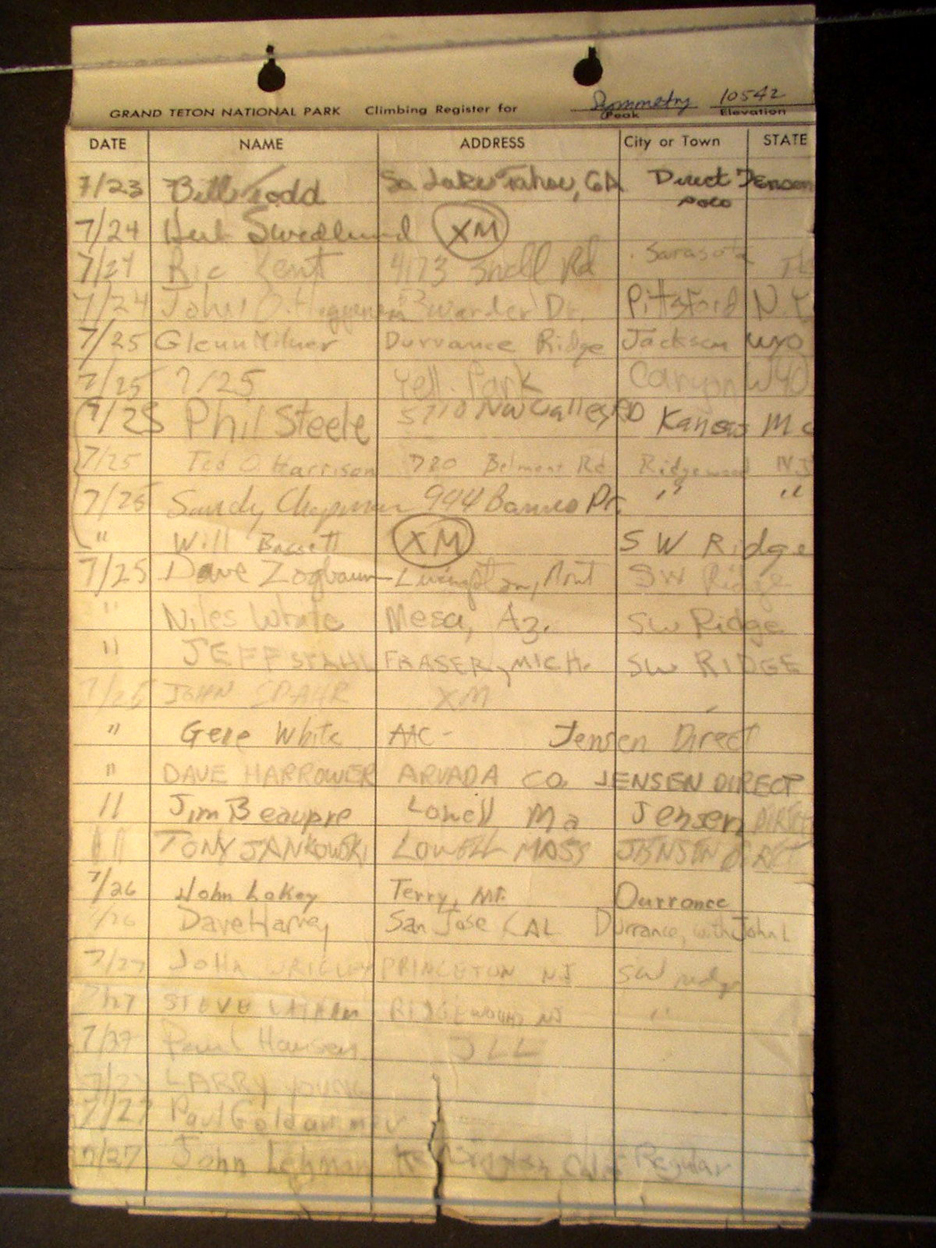 GRAND TETON NATIONAL PARK Climbing Register for Symmetry 10542
Peak Elevation
DATE NAME ADDRESS City or Town STATE
7/23 Bill Todd So Lake Tahoe, CA Direct Jensen
solo
7/24 Herb Swedlund XM
7/24 Ric Kent 4173 Shell Rd Sarasota
7/24 John O. Warder Dr. Pittsford N.Y.
7/25 Glenn Milner Durrance Ridge Jackson Wyo
7/25 7/25 Yell. Park Canyon WYO
7/25 Phil Steele 5710 NW Valley RD Kansas Mo
7/25 Ted O. Harrison 780 Belmont Rd Ridgewood NJ
7/25 Sandy Chapman 944 Barnes Dr. " "
" Will Bassett XM SW Ridge
7/25 Dave Zogbaum Livingston, Mont SW Ridge
" Niles White Mesa, Az. SW Ridge
" JEFF STAHL FRASER, MICH. SW RIDGE
7/26 JOHN SPAHR XM
" Gene White AAC - Jensen Direct
" DAVE HARROWER ARVADA CO. JENSEN DIRECT
" Jim Beaupre Lowell Ma Jensen DIRECT
" TONY JANKOWSKI LOWELL MASS JENSEN DIRECT
7/26 John Lakey Terry, Mt. Durrance
7/26 Dave Harvey San Jose CAL Durrance, with John L
7/27 JOHN WRIGLEY PRINCETON NJ SW ridge
7/27 STEVE RIDGEWOOD NJ "
7/27 Paul Hansen JLL
7/27 LARRY YOUNG
7/27 Paul
7/27 John Lehman Regular